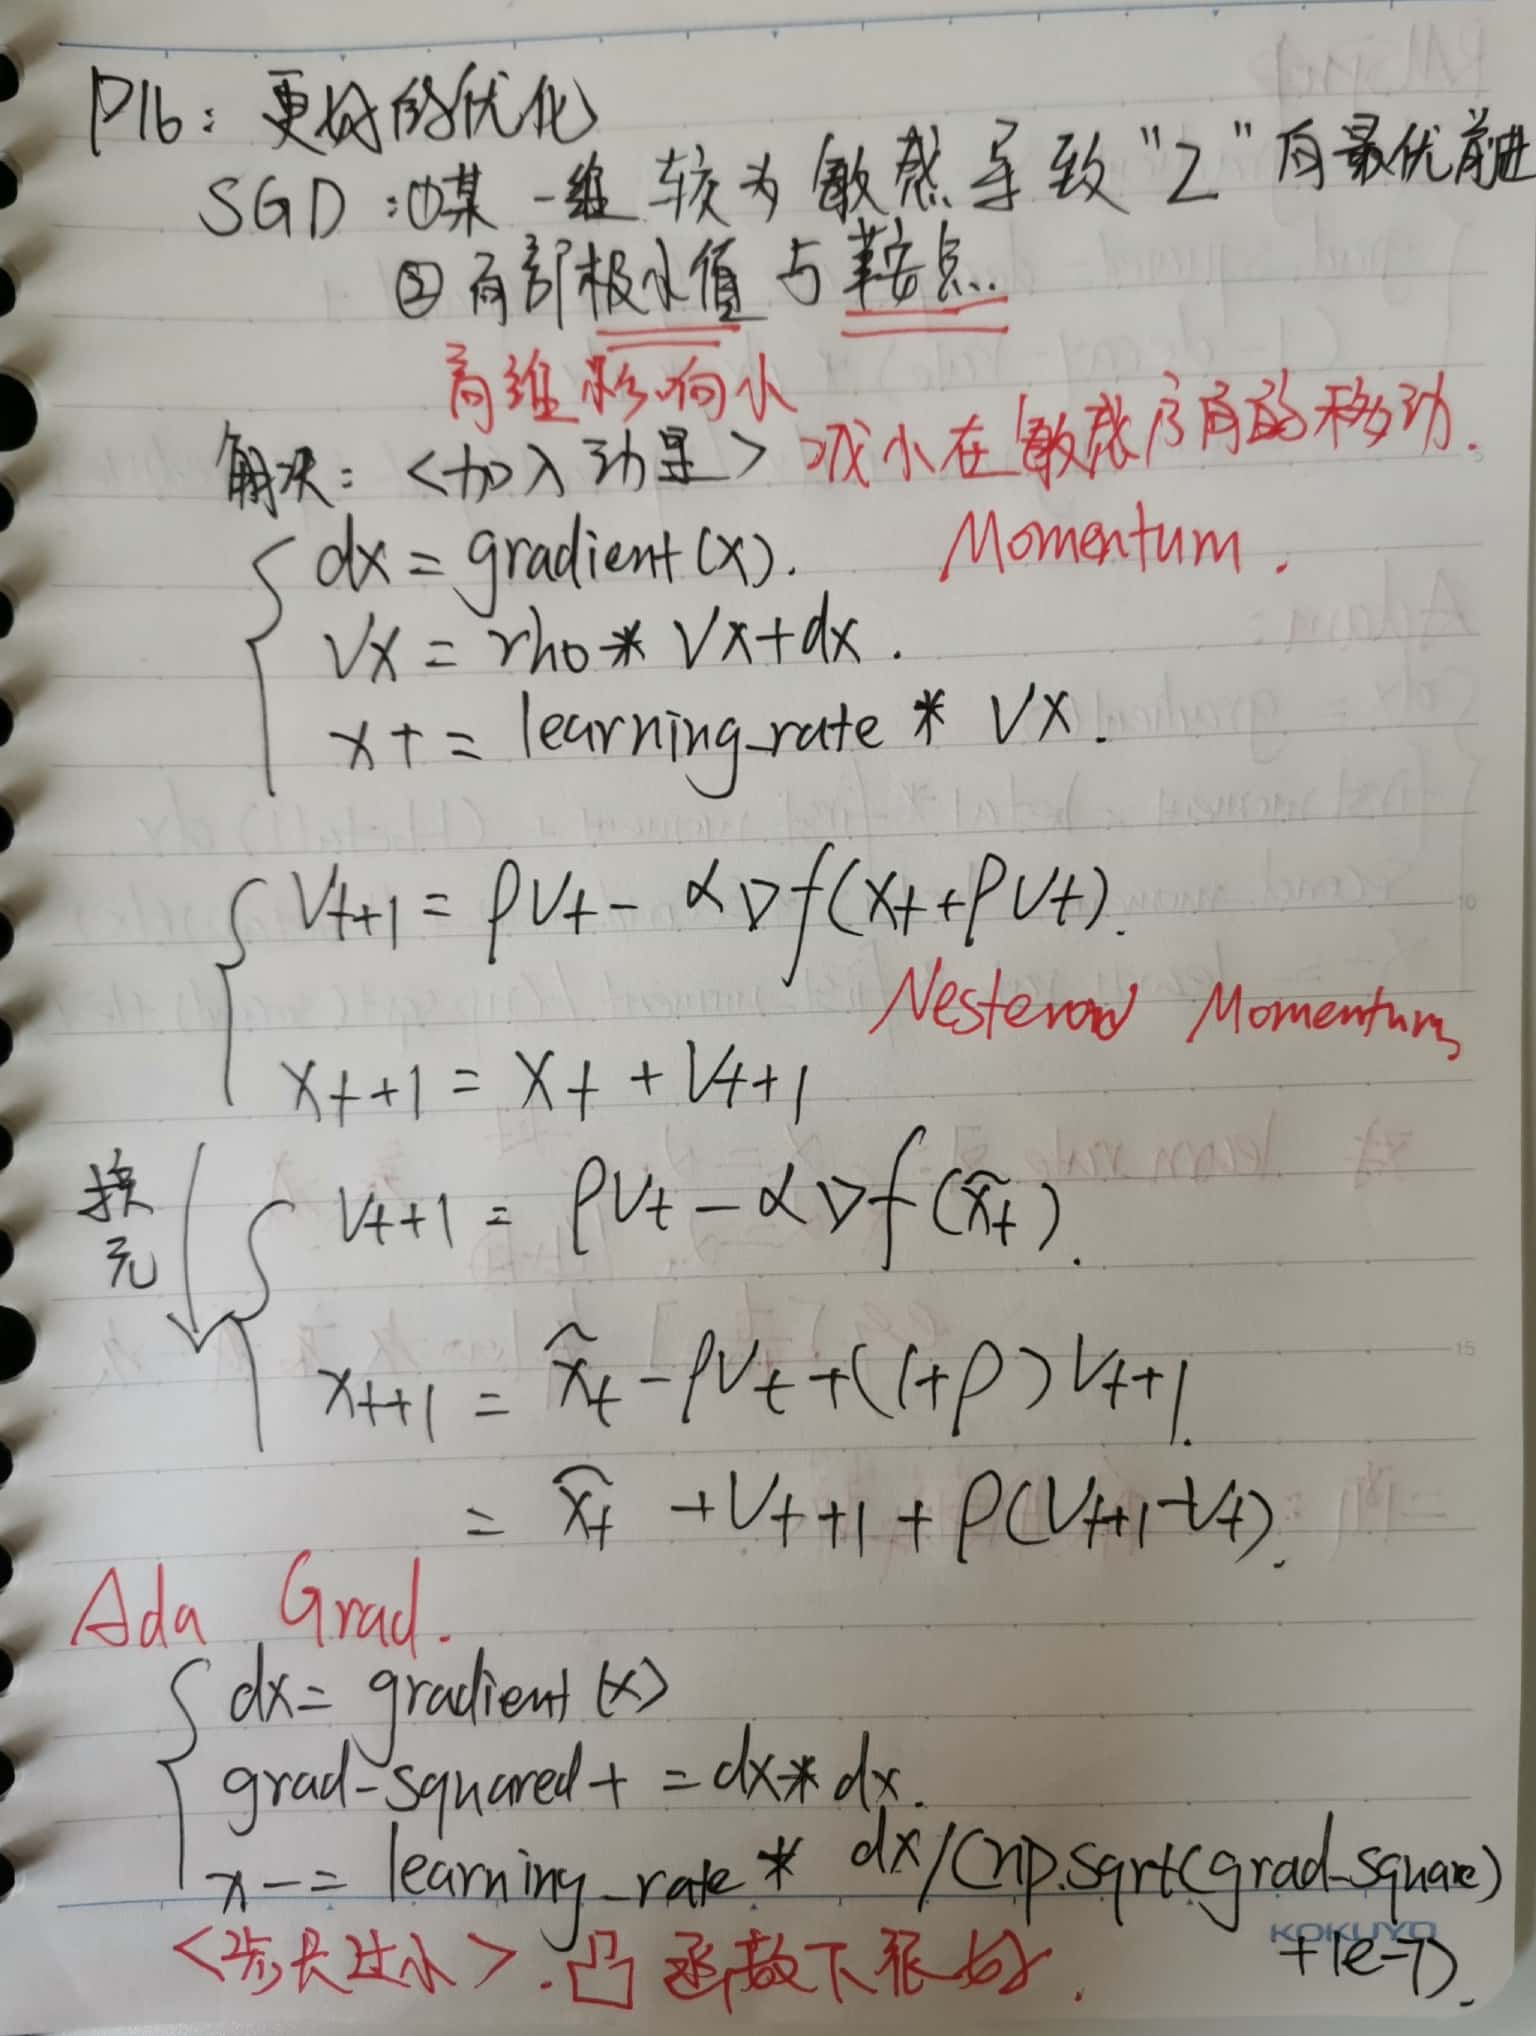 P16: 更好的优化
SGD: ①某一维较为敏感导致"Z"向最优前进
②局部极小值与鞍点.
高维影响小
解决: <加入动量> 减小在敏感方向的移动.
dx = gradient(x).
Momentum.
Vx = rho * Vx + dx.
x += learning_rate * Vx.
Vt+1 = ρVt - α∇f(xt + ρVt).
Nesterov Momentum
xt+1 = xt + Vt+1
换元
Vt+1 = ρVt - α∇f(x̃t).
xt+1 = x̃t - ρVt + (1+ρ)Vt+1.
= x̃t + Vt+1 + ρ(Vt+1 - Vt).
Ada Grad.
dx = gradient(x)
grad-squared += dx * dx.
x -= learning_rate * dx/(np.sqrt(grad-square)
+1e-7).
<步长过小>. 凸函数下很好.
KOKUYO